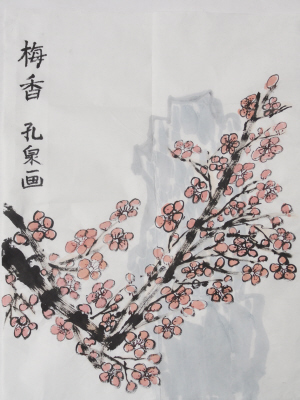 梅香
孔泉画